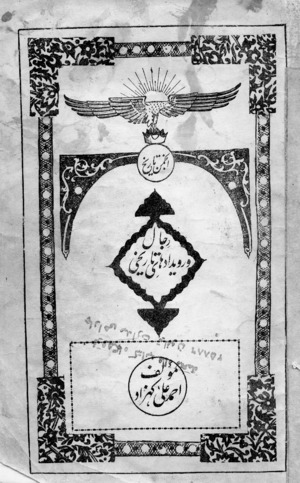 انجمن تاریخ
رجال
و رویداد های تاریخی
مؤلف
احمد علی کهزاد